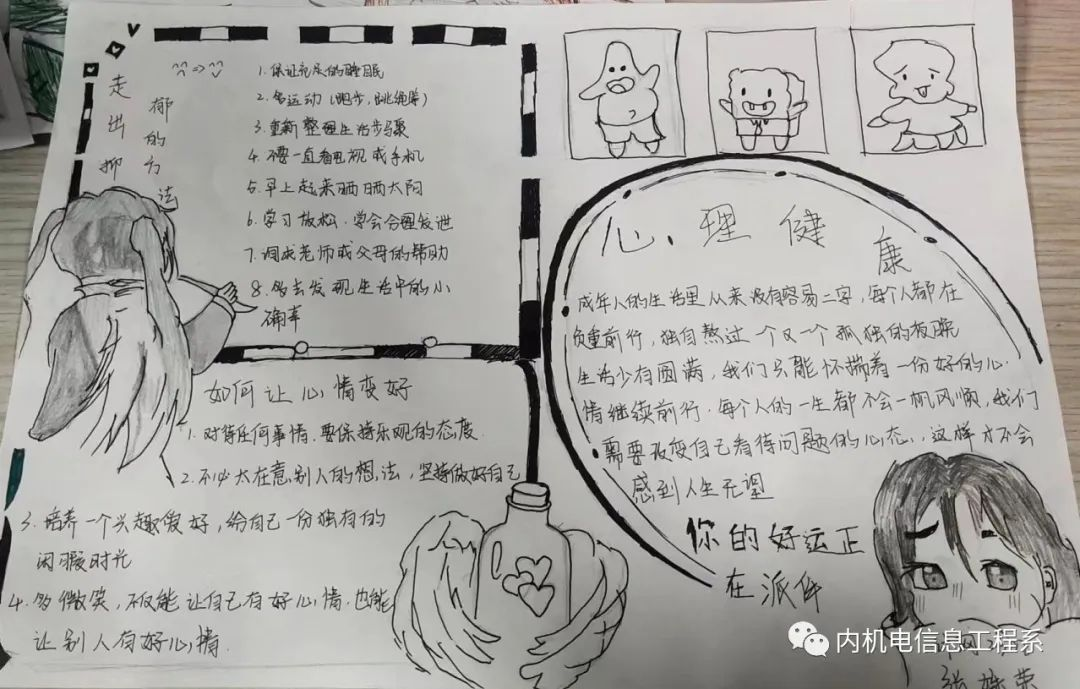 走出抑
郁的方法
1. 保证充足的睡眠
2. 多运动(跑步,跳绳等)
3. 重新整理生活步骤
4. 不要一直看电视或手机
5. 早上起来晒晒太阳
6. 学习放松.学会合理发泄
7. 调求老师或父母的帮助
8. 多去发现生活中的小
确幸
如何让心情变好
1. 对待任何事情.要保持乐观的态度.
2. 不必太在意别人的想法,坚持做好自己
3. 培养一个兴趣爱好,给自己一份独有的
闲暇时光
4. 多微笑,不仅能让自己有好心情.也能
让别人有好心情.
心理健康
成年人的生活里从来没有容易二字,每个人都在
负重前行,独自熬过一个又一个孤独的夜晚
生活少有圆满,我们只能怀揣着一份好的心
情继续前行.每个人的一生都不会一帆风顺,我们
需要改变自己看待问题的心态.,这样才不会
感到人生无望
你的好运正
在派件
内机电信息工程系